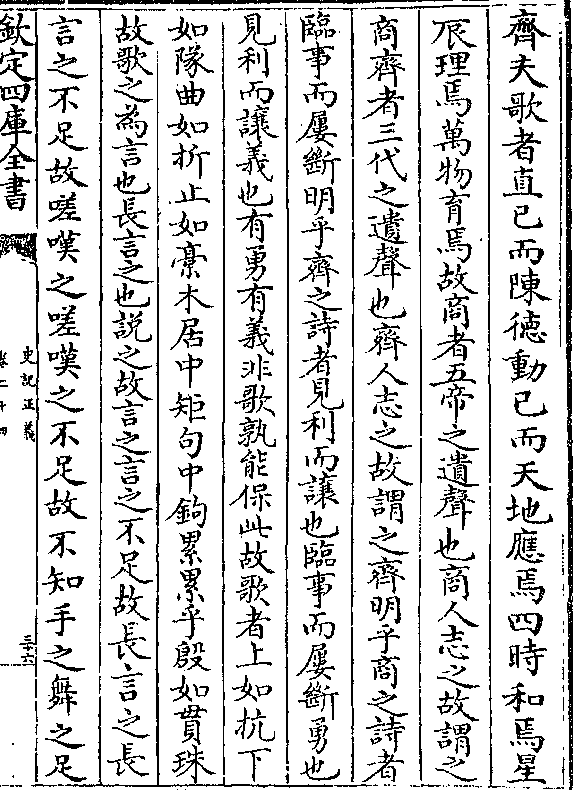 齊夫歌者直已而陳徳動已而天地應焉四時和焉星
辰理焉萬物育焉故商者五帝之遺聲也商人志之故謂之
商齊者三代之遺聲也齊人志之故謂之齊明乎商之詩者
臨事而屢斷明乎齊之詩者見利而讓也臨事而屢斷勇也
見利而讓義也有勇有義非歌孰能保此故歌者上如抗下
如隊曲如折止如槀木居中矩句中鉤累累乎殷如貫珠
故歌之為言也長言之也説之故言之言之不足故長言之長
言之不足故嗟嘆之嗟嘆之不足故不知手之舞之足
欽定四庫全書
史記正義
卷二十四
三十六